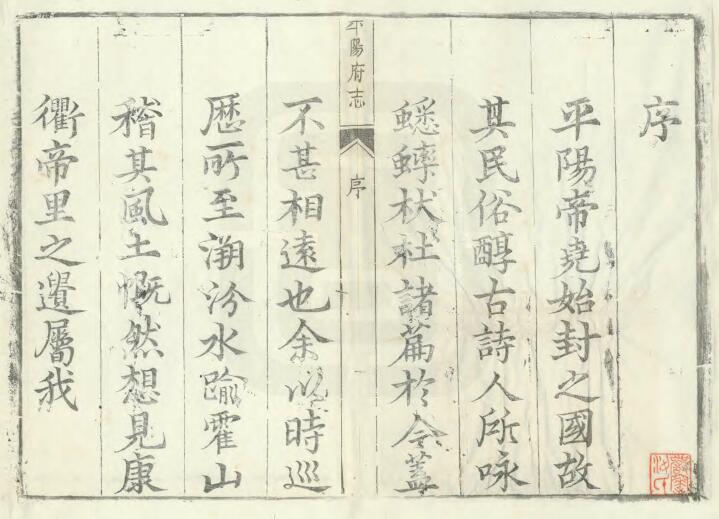 序
平陽帝堯始封之國故
其民俗醇古詩人所咏
蟋蟀杕杜諸篇於今蓋
平陽府志
序
不甚相遠也余以時巡
歷所至溯汾水踰霍山
稽其風土慨然想見康
衢帝里之遺屬我